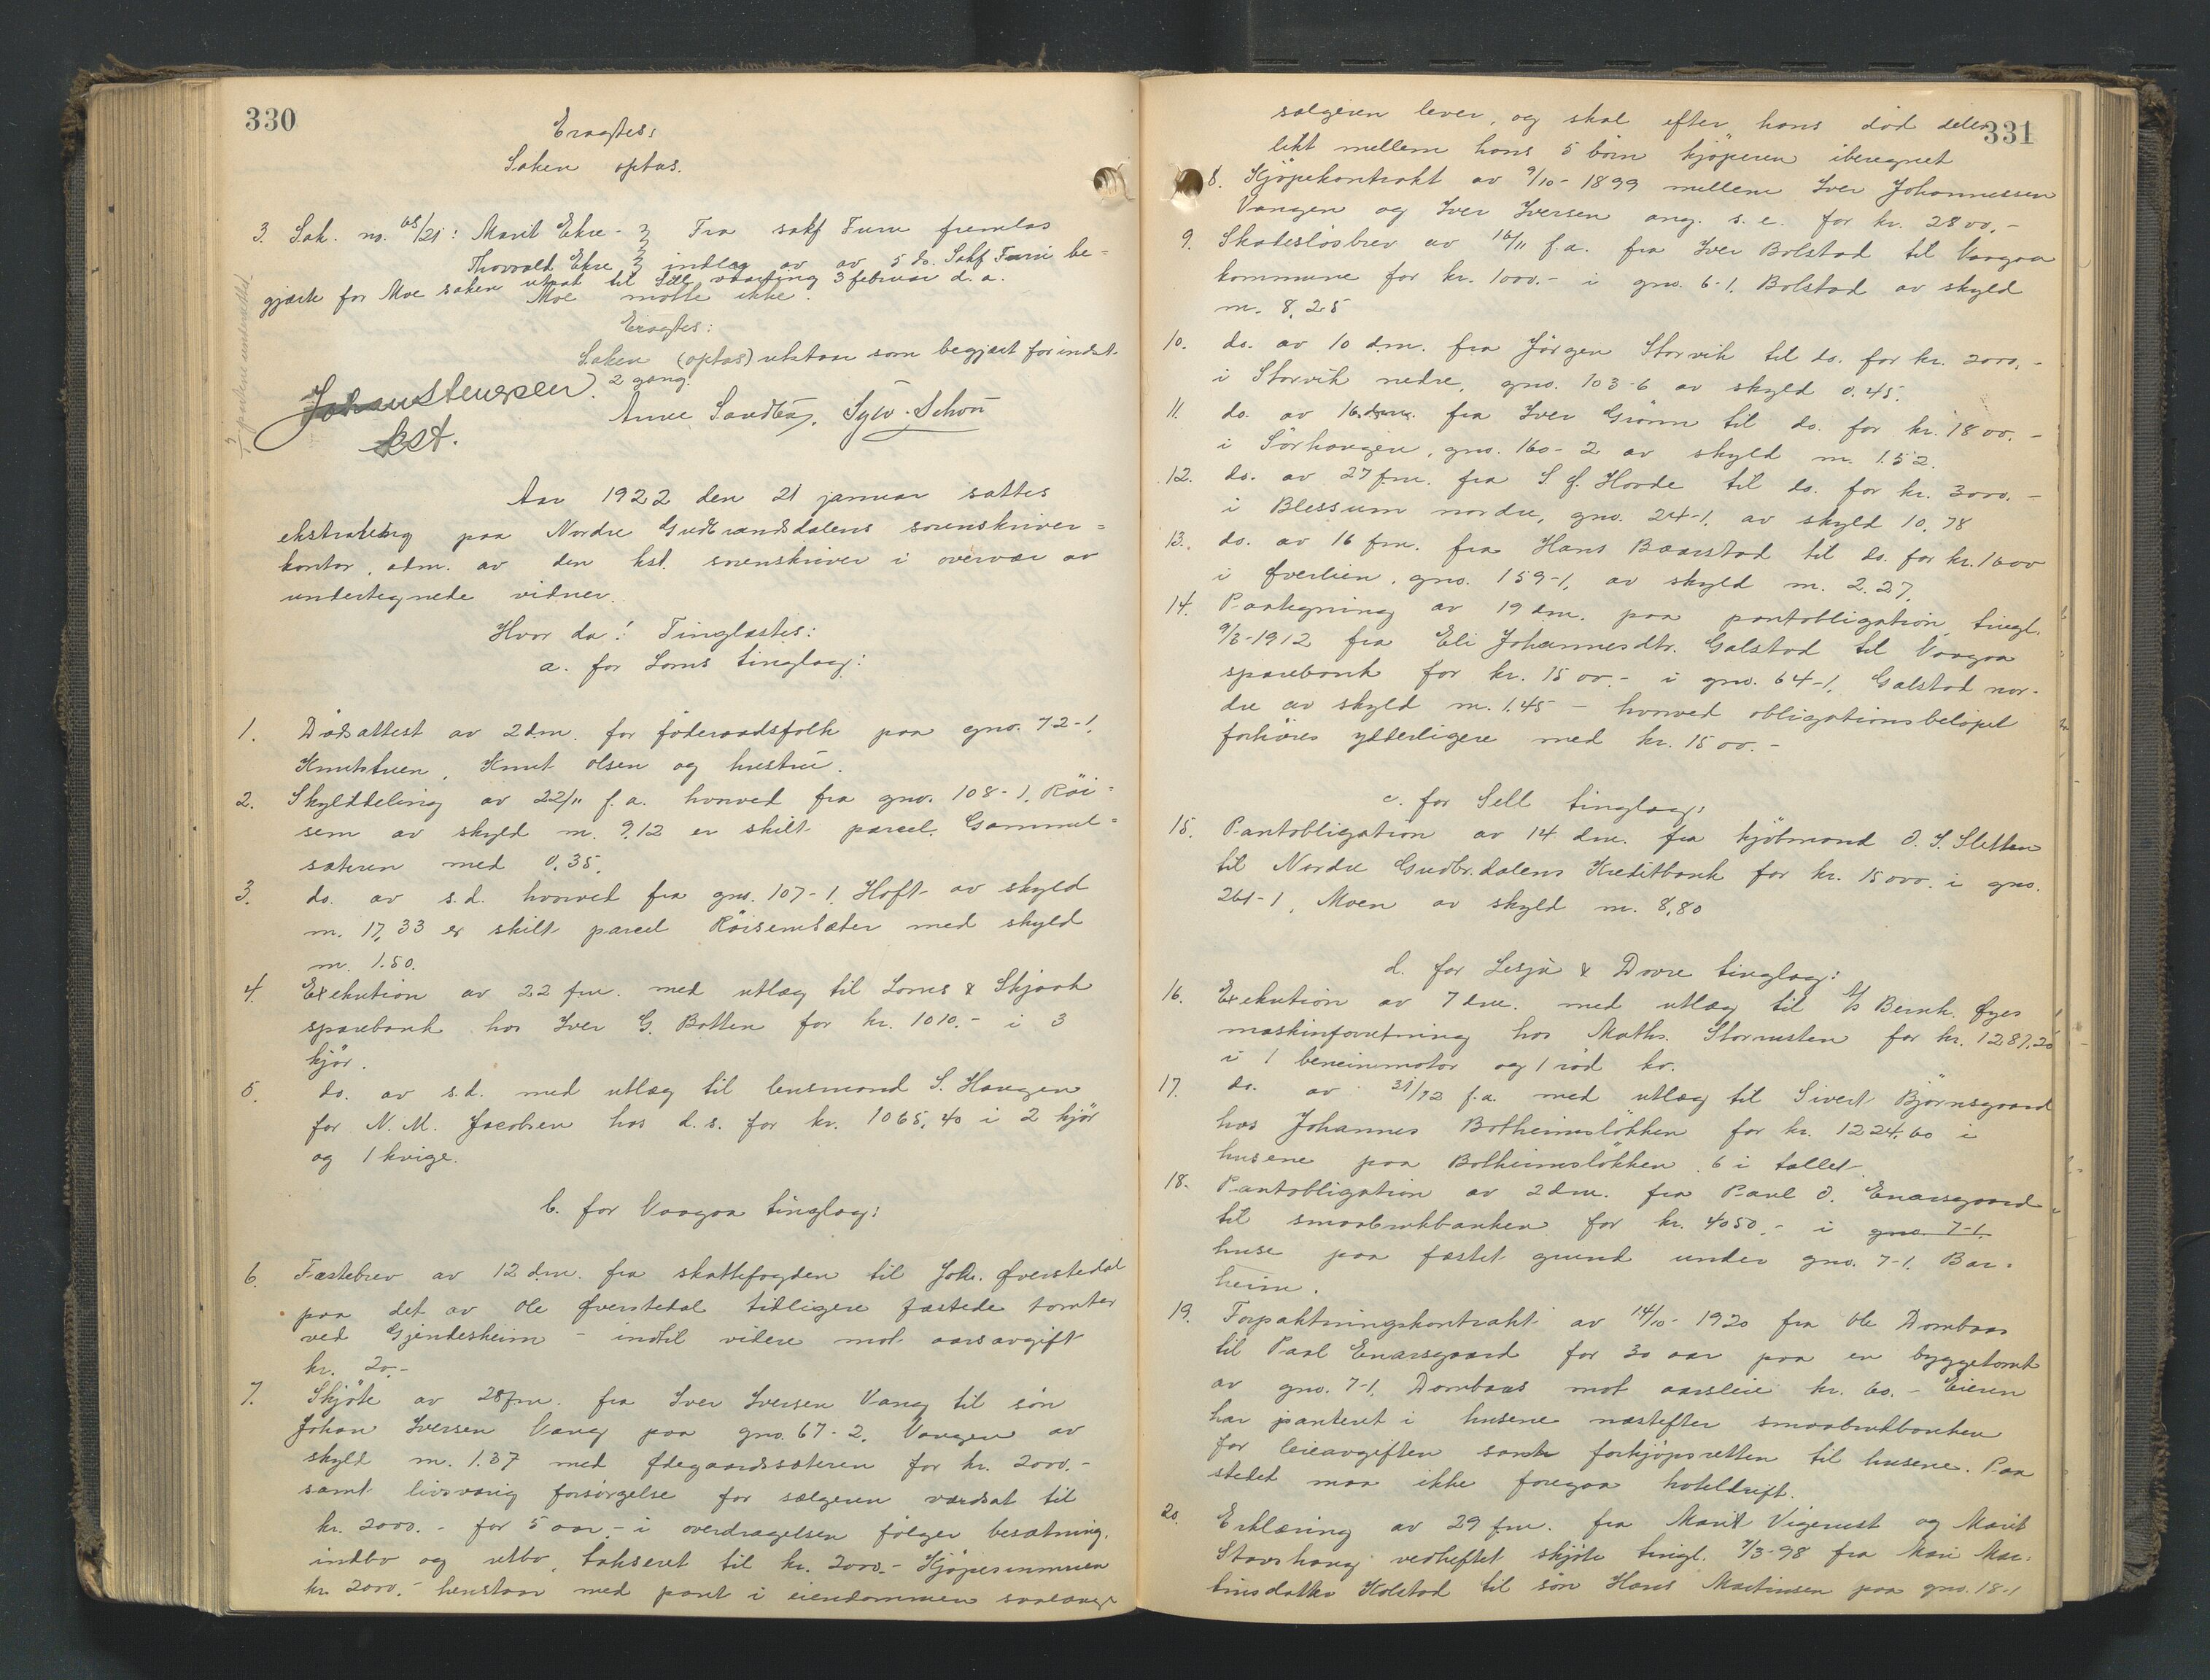 330
Eragtes:
Saken optas.
3. Sak. no. 68/21: Marit Ekre - Fra sakf Furu fremlas
Thorvald Ekre indlæg av av 5 ds. Sakf Furu be-
gjærte for Moe saken utsat til Sell vaarting 3 februar d.a.
Moe møtte ikke.
Eragtes:
Saken (optas) utstaar som begjært for indst.
2 gang.
Johan Stengsen
kst.
Anne Sandbø, Sylv. Schou
Aar 1922 den 21 januar sattes
ekstrating paa Nordre Gudbrandsdalens sorenskriver=
kontor, adm. av den kst. sorenskriver i overvær av
undertegnede vidner.
Hvor da! Tinglæstes:
a. for Loms tinglag:
1. Dødsattest av 2 dm. for føderaadsfolk paa gno. 72-1,
Knutstuen, Knut Olsen og hustru.
2. Skylddeling av 22/11 f.a. hvorved fra gno. 108-1, Røi=
sem av skyld m. 9,12 er skilt parcel. Gammel=
sæteren med 0,35.
3. do. av s.d. hvorved fra gno. 107-1, Hoft av skyld
m. 17,33 er skilt parcel Røisemsæter med skyld
m. 1.50.
4. Exekution av 22 fm. med utlæg til Loms & Skjaak
sparebank hos Iver G. Botten for kr. 1010.- i 3
kjør.
5. do. av s.d. med utlæg til lensmand S. Haugen
for N. M. Jacobsen hos d.s. for kr. 1065,40 i 2 kjør
og 1 kvige.
b. for Vaagaa tinglag:
6. Fæstebrev av 12 dm. fra skattefogden til Joh. Øverstedal
paa det av Ole Øverstedal tidligere fæstede tomter
ved Gjendesheim - indtil videre mot aarsavgift
kr. 20.-
7. Skjøte av 28 fm. fra Iver Iversen Vang til søn
Johan Iversen Vang paa gno. 67-2, Vangen av
skyld m. 1.37 med Ødegaardssæteren for kr. 2000.-
samt livsvarig forsørgelse for sælgeren værdsat til
kr. 2000.- for 5 aar - i overdragelsen følger besætning,
indbo og utbo, takseret til kr. 2000.- Kjøpesummen
kr. 2000.- henstaar med pant i eiendommen saalænge
331
sælgeren lever, og skal efter hans død deles
likt mellem hans 5 børn kjøperen iberegnet
8. Kjøpekontrakt av 9/10-1899 mellem Iver Johannessen
Vangen og Iver Iversen ang. s.e. for kr. 2800.-
9. Skadesløsbrev av 16/11 f.a. fra Iver Bolstad til Vaagaa
kommune for kr. 1000.- i gno. 6-1, Bolstad av skyld
m. 8,25
10. do. av 10 dm. fra Jørgen Storvik til do. for kr. 2000,-
i Storvik nedre, gno. 103-6 av skyld 0.45.
11. do. av 16 dm. fra Iver Grønn til do. for kr. 1800.-
i Sørhaugen, gno. 160-2 av skyld m. 1.52.
12. do. av 27 fm. fra S. J. Horde til do. for kr. 3000.-
i Blessum nordre, gno. 24-1, av skyld 10,78
13. do. av 16 fm. fra Hans Baarstad til do. for kr. 1600
i Øverlien, gno. 159-1, av skyld m. 2.27,
14. Paategning av 19 dm. paa pantobligation, tingl.
9/3-1912 fra Eli Johannesdtr. Galstad til Vaagaa
sparebank for kr. 1500.- i gno. 64-1, Galstad nor-
dre av skyld m. 1.45 - hvorved obligationsbeløpet
forhøies ytterligere med kr. 1500.-
c. for Sell tinglag:
15. Pantobligation av 14 dm. fra kjøbmand O. S. Sletten
til Nordre Gudbr.dalens Kreditbank for kr. 15000. i gno.
261-1, Moen av skyld m. 8,80
d. for Lesja & Dovre tinglag:
16. Exekution av 7 dm. med utlæg til A/S Bernh. Øyes
maskinforretning hos Maths. Storrusten for kr. 1287.20
i 1 bensinmotor og 1 rød ko.
17. do. av 31/12 f.a. med utlæg til Sivert Bjørnsgaard
hos Johannes Botheimsløkken for kr. 1224.60 i
husene paa Botheimsløkken, 6 i tallet.
18. Pantobligation av 2 dm. fra Paul O. Enarsgaard
til smaabrukbanken for kr. 4050.- i gno. 7-1,
huse paa fæstet grund under gno. 7-1, Bar=
heim.
19. Forpaktningskontrakt av 14/10-1920 fra Ole Dombaas
til Paal Enarsgaard for 30 aar paa en byggetomt
av gno. 7-1, Dombaas mot aarsleie kr. 60.- Eieren
har panteret i husene næstefter smaabrukbanken
for leieavgiften samt forkjøpsretten til husene. Paa
stedet maa ikke foregaa hoteldrift.
20. Erklæring av 29 fm. fra Marit Vigerust og Marit
Stavshaug vedheftet skjøte tingl. 7/3-98 fra Mari Mar-
tinsdatter Kolstad til søn Hans Martinsen paa gno. 18-1